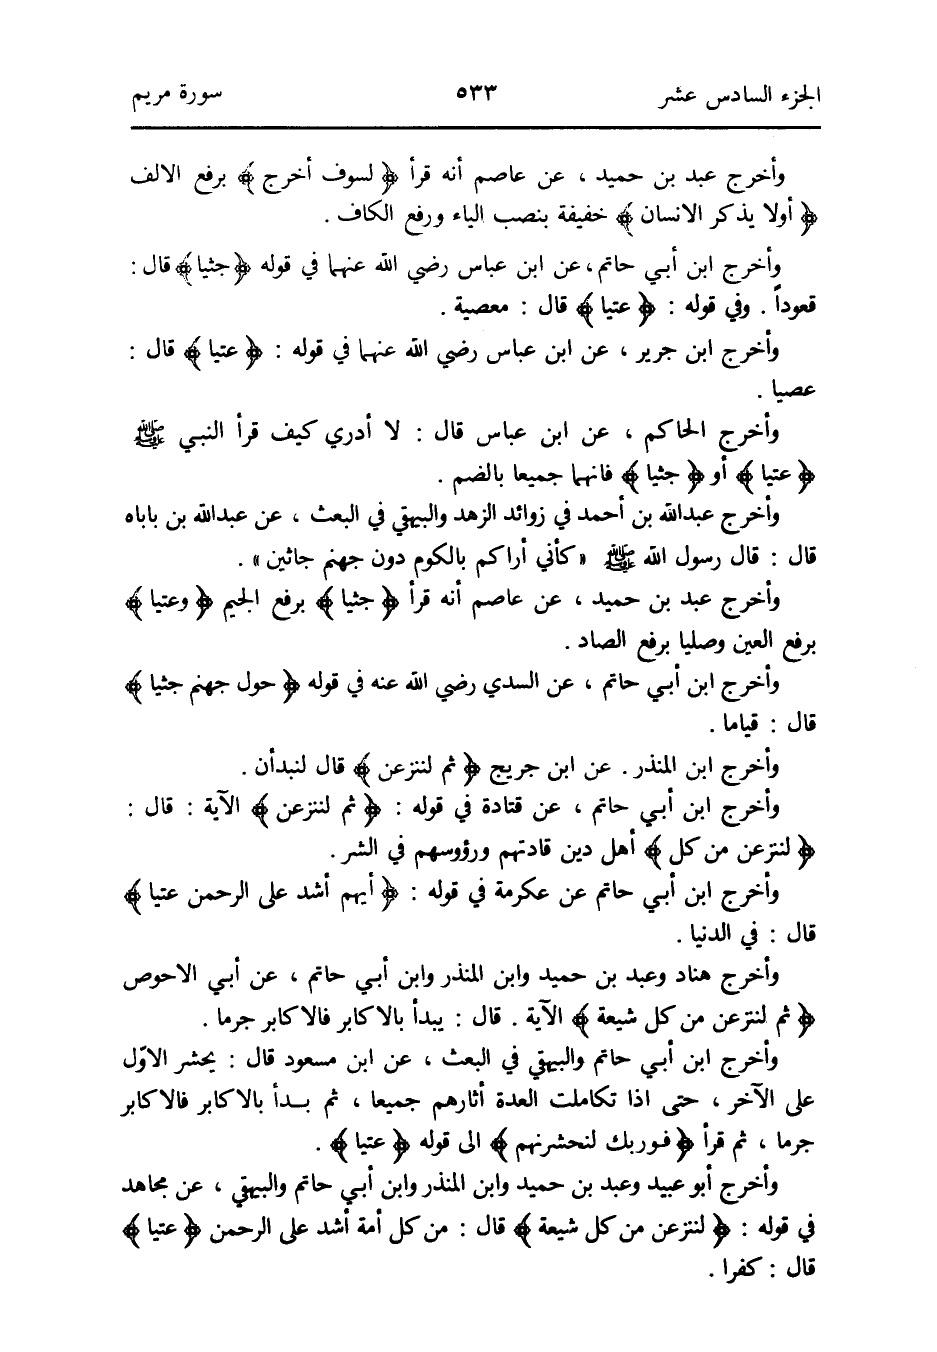 الجزء السادس عشر ٥٣٣ سورة مريم
وأخرج عبد بن حميد ، عن عاصم أنه قرأ ﴿ لسوف أخرج ﴾ برفع الالف
﴿ أولا يذكر الانسان ﴾ خفيفة بنصب الياء ورفع الكاف .
وأخرج ابن أبي حاتم ، عن ابن عباس رضي الله عنهما في قوله ﴿ جثيا ﴾ قال :
قعوداً . وفي قوله : ﴿ عتيا ﴾ قال : معصية .
وأخرج ابن جرير ، عن ابن عباس رضي الله عنهما في قوله : ﴿ عتيا ﴾ قال :
عصيا .
وأخرج الحاكم ، عن ابن عباس قال : لا أدري كيف قرأ النبي ﷺ
﴿ عتيا ﴾ أو ﴿ جثيا ﴾ فانهما جميعا بالضم .
وأخرج عبدالله بن أحمد في زوائد الزهد والبيهقي في البعث ، عن عبدالله بن باباه
قال : قال رسول الله ﷺ « كأني أراكم بالكوم دون جهنم جاثين » .
وأخرج عبد بن حميد ، عن عاصم أنه قرأ ﴿ جثيا ﴾ برفع الجيم ﴿ وعتيا ﴾
برفع العين وصليا برفع الصاد .
وأخرج ابن أبي حاتم ، عن السدي رضي الله عنه في قوله ﴿ حول جهنم جثيا ﴾
قال : قياما .
وأخرج ابن المنذر . عن ابن جريج ﴿ ثم لننزعن ﴾ قال لنبدأن .
وأخرج ابن أبي حاتم ، عن قتادة في قوله : ﴿ ثم لننزعن ﴾ الآية : قال :
﴿ لننزعن من كل ﴾ أهل دين قادتهم ورؤوسهم في الشر .
وأخرج ابن أبي حاتم عن عكرمة في قوله : ﴿ أيهم أشد على الرحمن عتيا ﴾
قال : في الدنيا .
وأخرج هناد وعبد بن حميد وابن المنذر وابن أبي حاتم ، عن أبي الاحوص
﴿ ثم لننزعن من كل شيعة ﴾ الآية . قال : يبدأ بالاكابر فالاكابر جرما .
وأخرج ابن أبي حاتم والبيهقي في البعث ، عن ابن مسعود قال : يحشر الاوّل
على الآخر ، حتى اذا تكاملت العدة أثارهم جميعا ، ثم بـدأ بالاكابر فالاكابر
جرما ، ثم قرأ ﴿ فوربك لنحشرنهم ﴾ الى قوله ﴿ عتيا ﴾ .
وأخرج أبو عبيد وعبد بن حميد وابن المنذر وابن أبي حاتم والبيهقي ، عن مجاهد
في قوله : ﴿ لننزعن من كل شيعة ﴾ قال : من كل أمة أشد على الرحمن ﴿ عتيا ﴾
قال : كفرا .